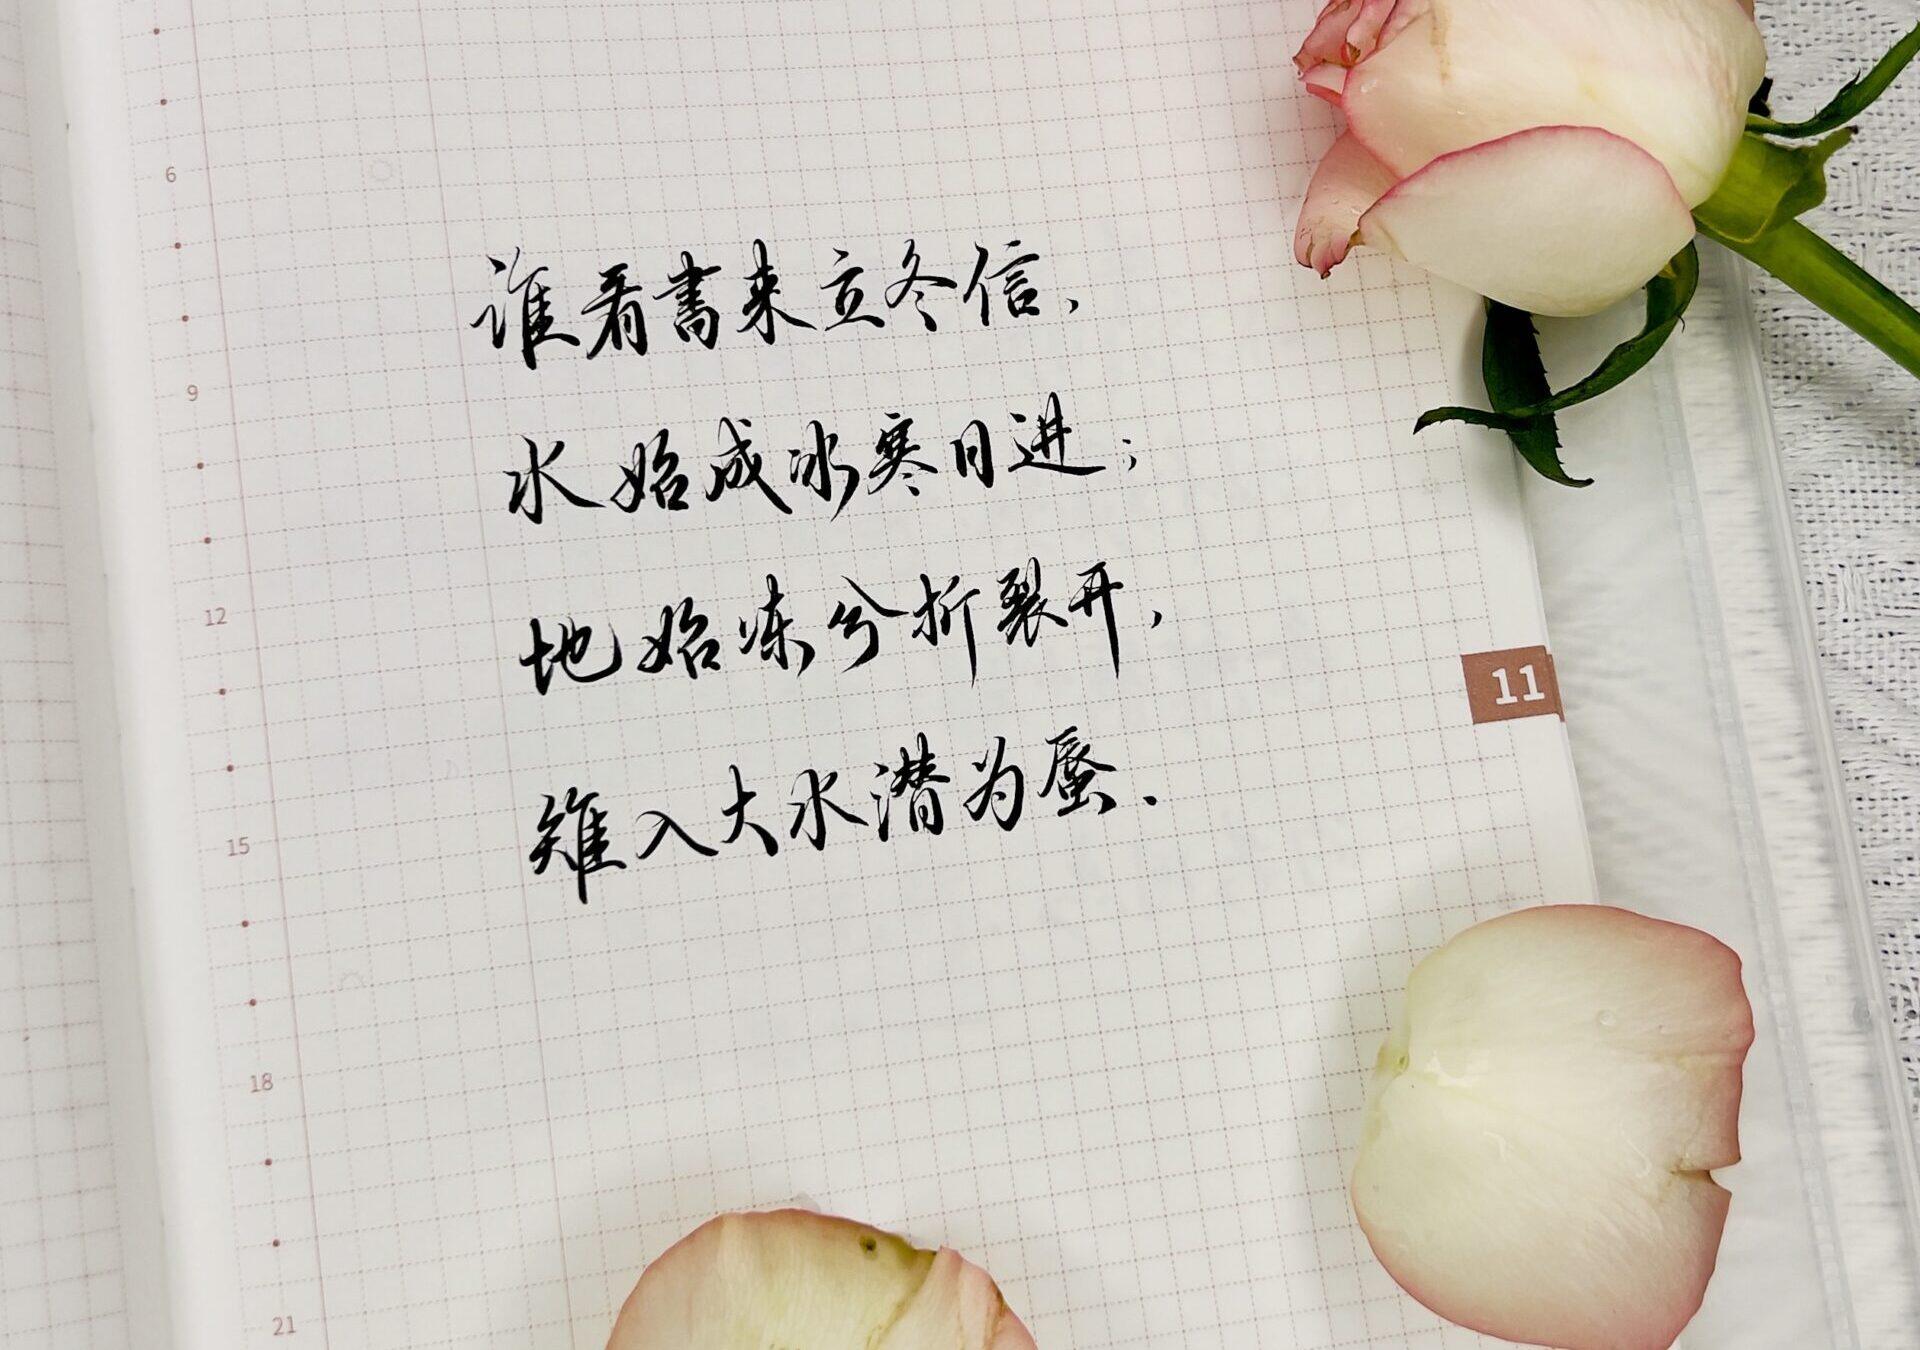 6
9
12
15
18
21
谁看書来立冬信，
水始成冰寒日进；
地始冻兮折裂开，
雉入大水潜为蜃．
11